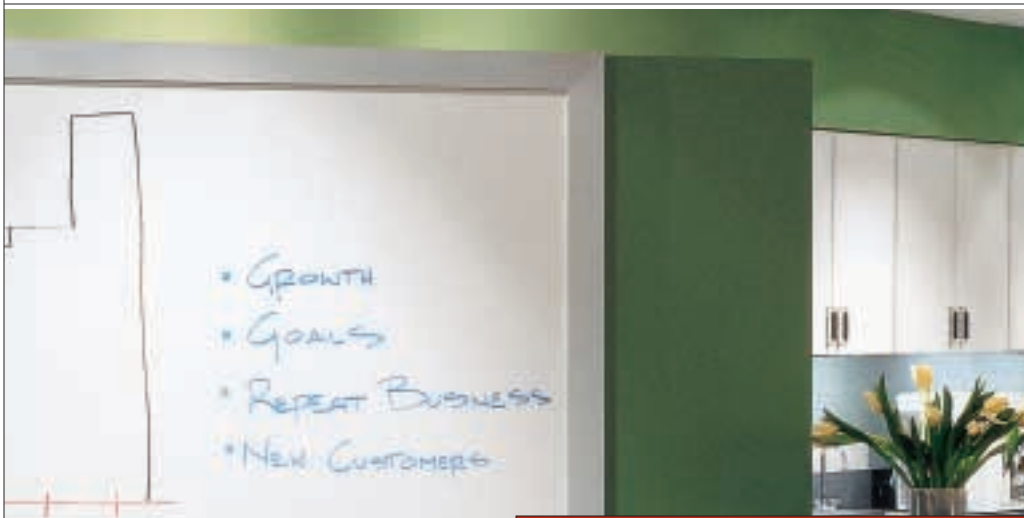 • GROWTH
• GOALS
• REPEAT BUSINESS
• NEW CUSTOMERS